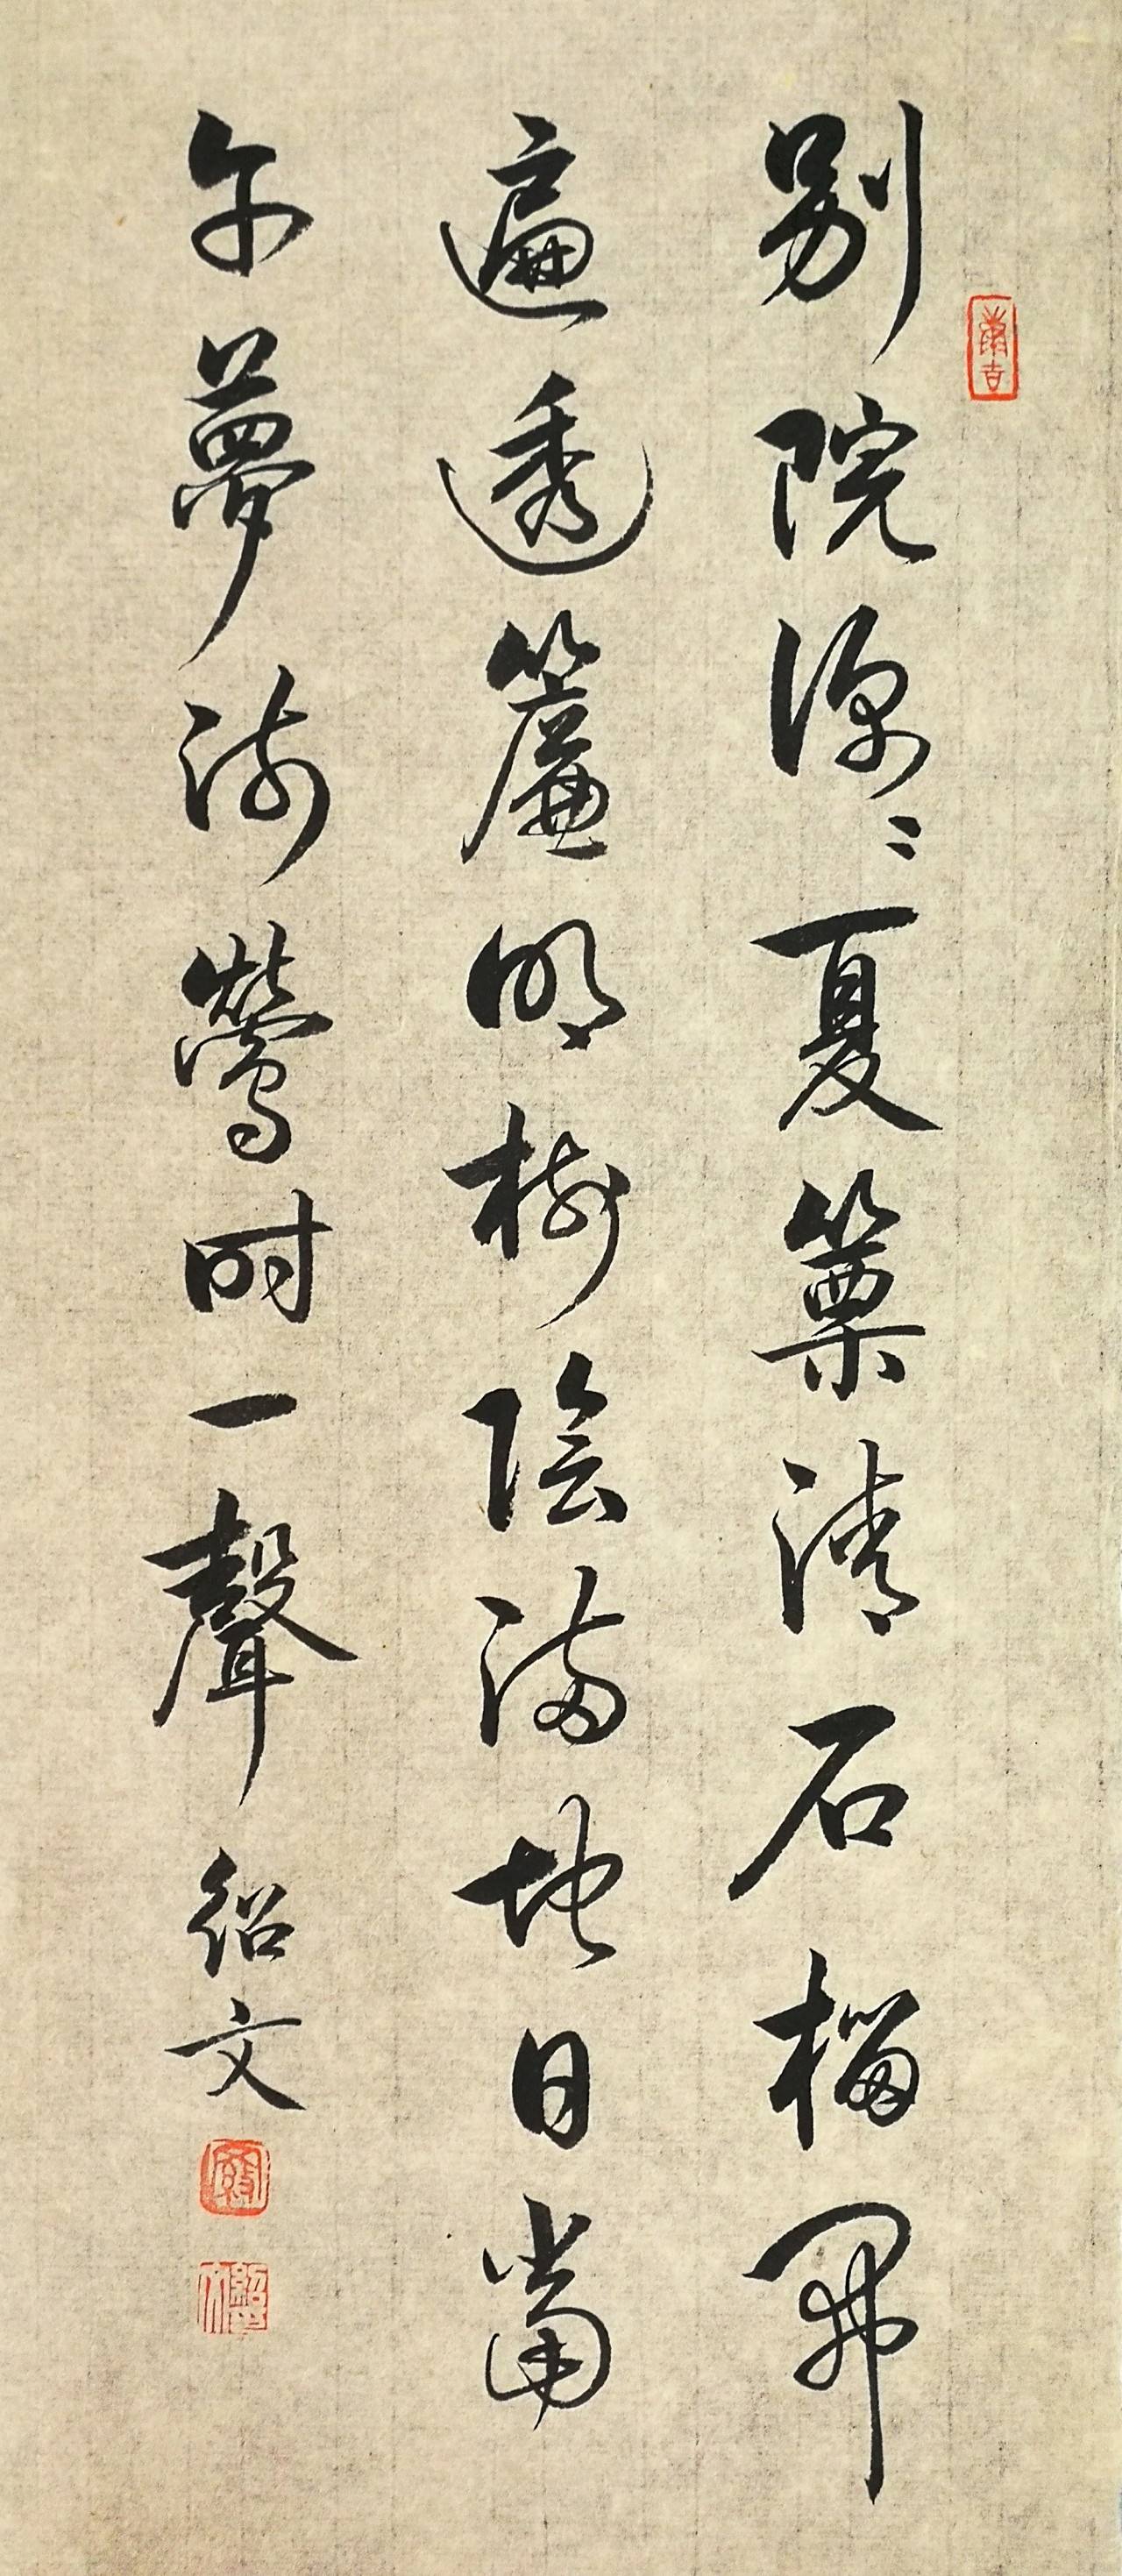 別院深〻夏簟清石榴開
遍透簾明樹陰滿地日當
午夢流鶯时一聲
绍文